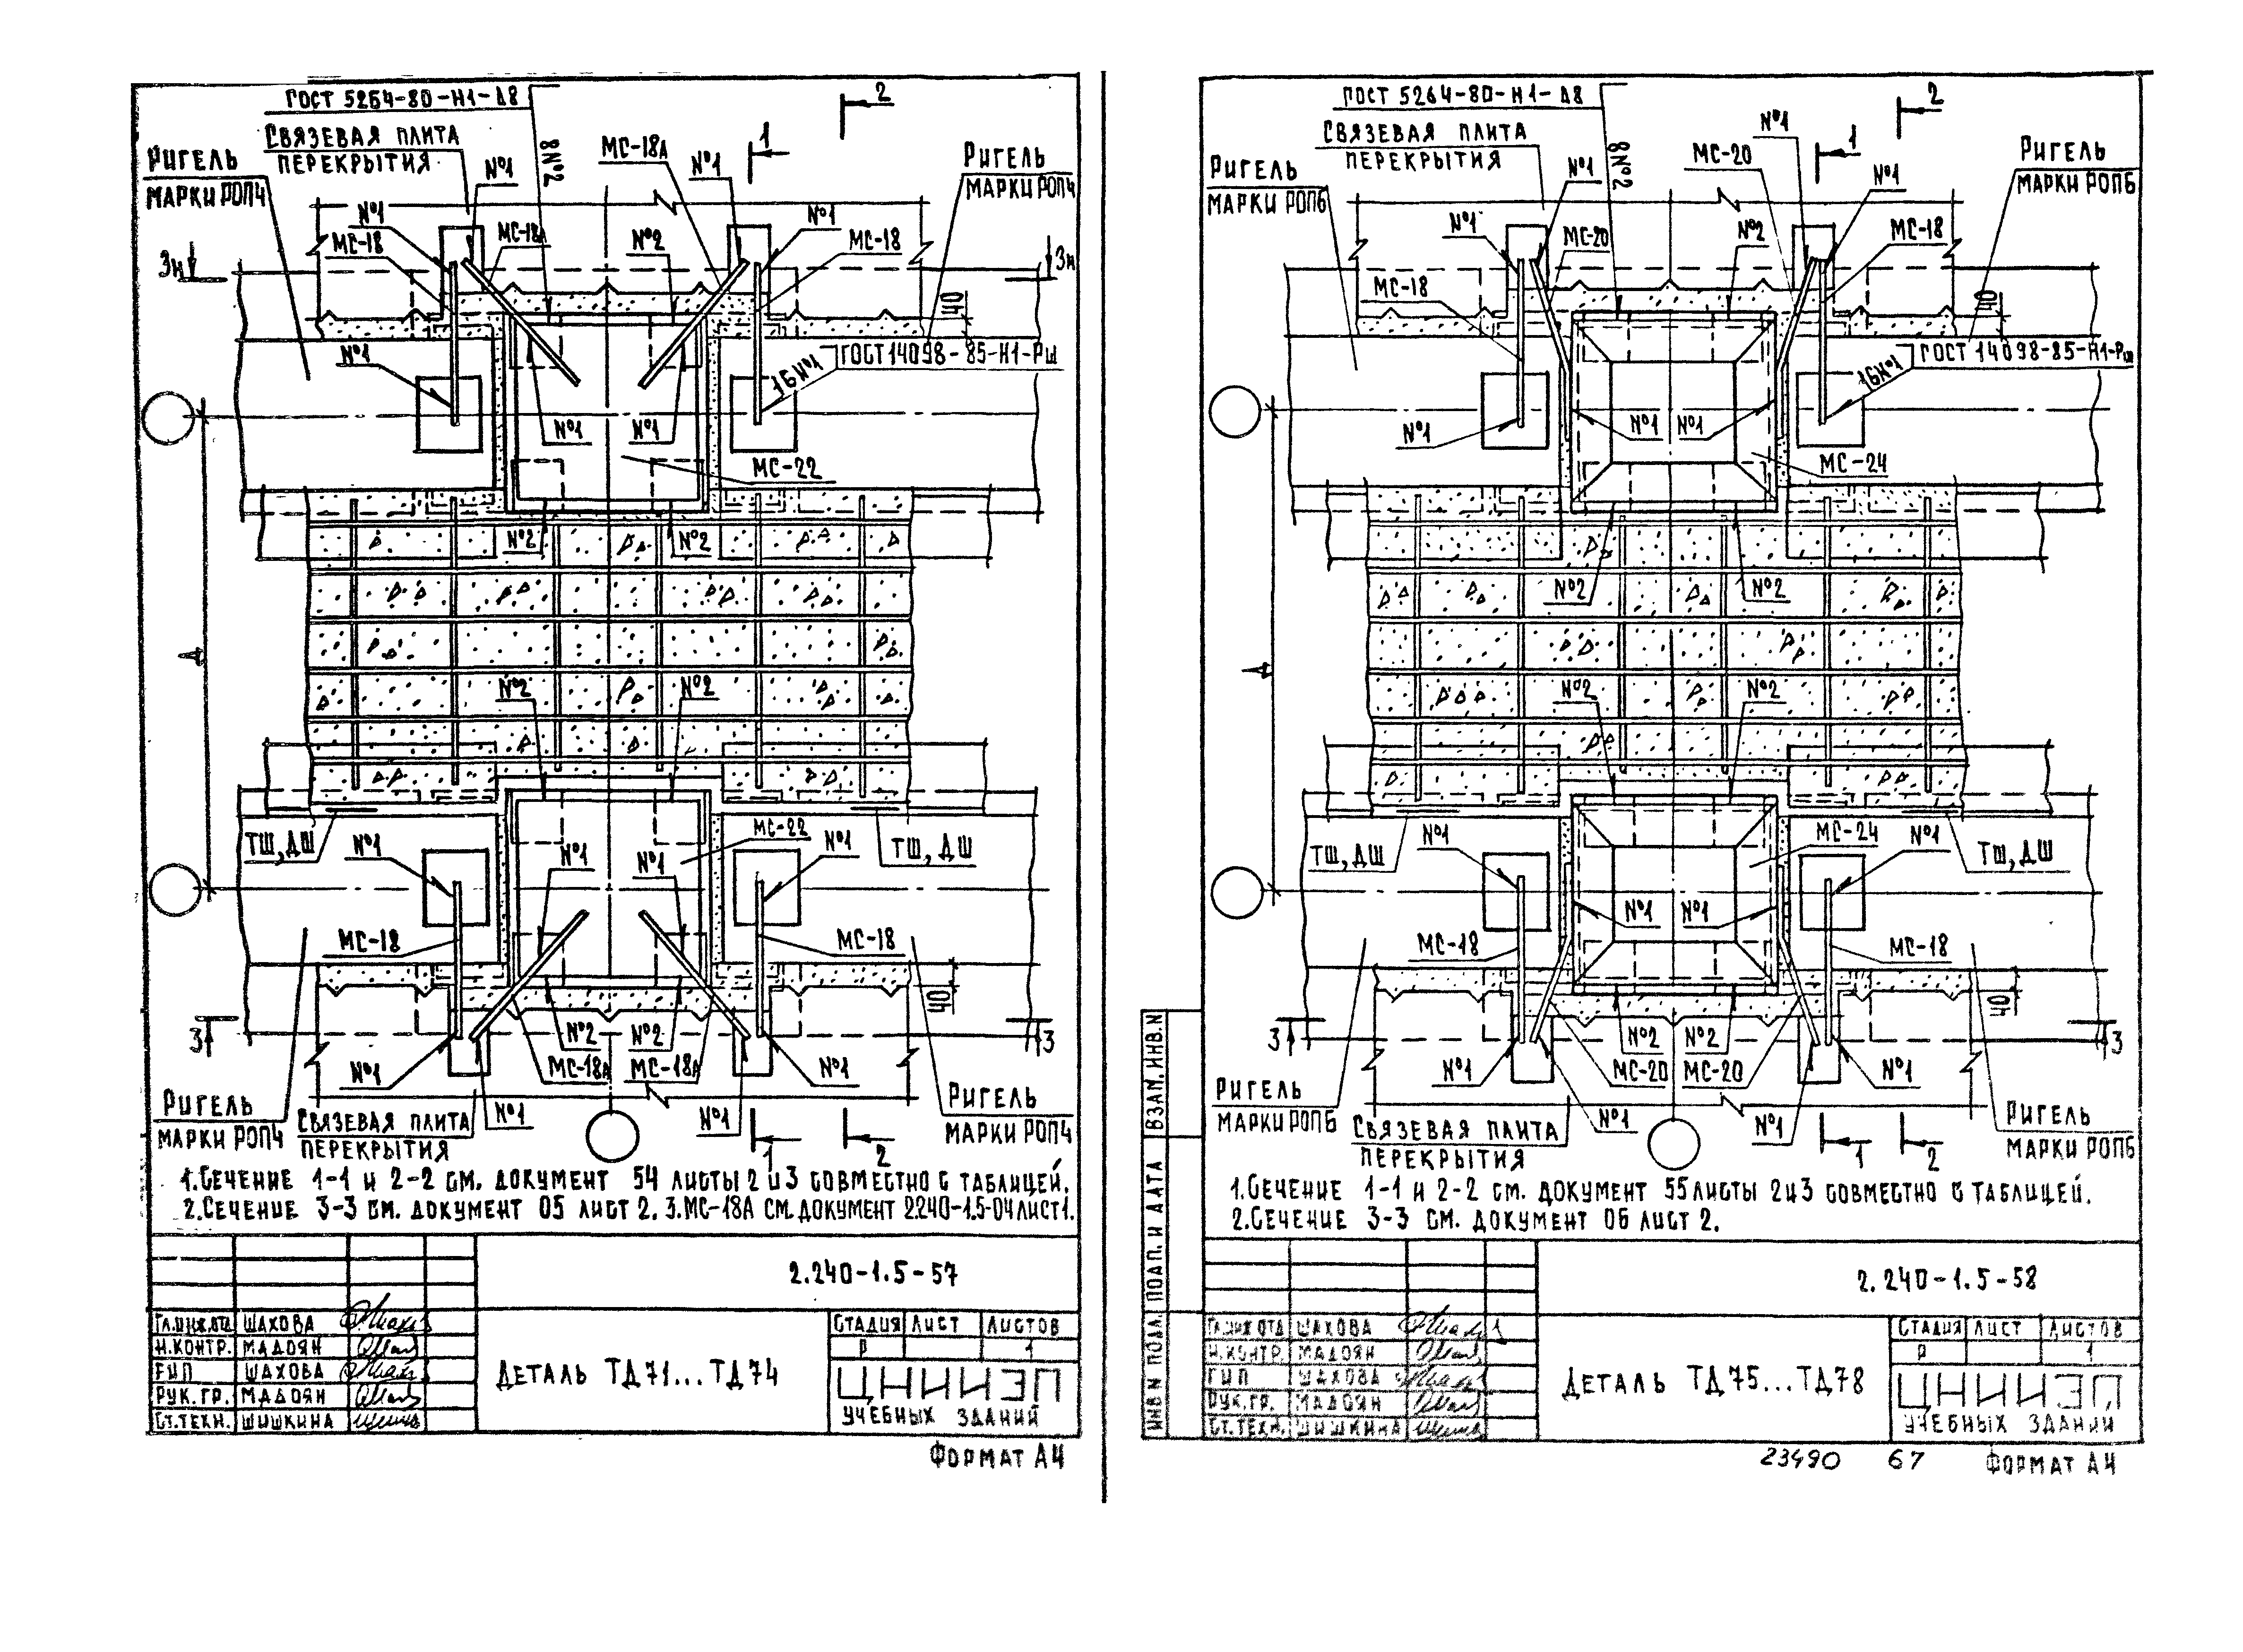 ГОСТ 5264-80-Н1-Δ8
2
СВЯЗЕВАЯ ПЛИТА
ПЕРЕКРЫТИЯ
8 №2
МС-18А
1
РИГЕЛЬ
МАРКИ РОП4
РИГЕЛЬ
МАРКИ РОП4
№1
№1
№1
№1
МС-18
МС-18А
№2
МС-18
3н
3н
40
№1
ГОСТ 14098-85-Н1-Рш
16№1
№1
№1
МС-22
№2
№2
Д
№2
№2
МС-22
ТШ, ДШ
№1
№1
№1
№1
ТШ, ДШ
МС-18
МС-18
40
3
№2
№2
3
№1
МС-18А
МС-18А
№1
РИГЕЛЬ
МАРКИ РОП4
СВЯЗЕВАЯ ПЛИТА
ПЕРЕКРЫТИЯ
№1
№1
1
2
РИГЕЛЬ
МАРКИ РОП4
1.СЕЧЕНИЕ 1-1 И 2-2 СМ. ДОКУМЕНТ 54 ЛИСТЫ 2 И 3 СОВМЕСТНО С ТАБЛИЦЕЙ.
2.СЕЧЕНИЕ 3-3 СМ. ДОКУМЕНТ 05 ЛИСТ 2. 3.МС-18А СМ. ДОКУМЕНТ 2.240-1.5-04 ЛИСТ 1.
2.240-1.5-57
ГЛ.ИНЖ.ОТД ШАХОВА
Н.КОНТР. МАДОЯН
ГИП ШАХОВА
РУК.ГР. МАДОЯН
СТ.ТЕХН. ШИШКИНА
ДЕТАЛЬ ТД71...ТД74
СТАДИЯ ЛИСТ ЛИСТОВ
Р 1
ЦНИИЭП
УЧЕБНЫХ ЗДАНИЙ
ФОРМАТ А4
ГОСТ 5264-80-Н1-Δ8
2
СВЯЗЕВАЯ ПЛИТА
ПЕРЕКРЫТИЯ
8 №2
№1
МС-20
1
РИГЕЛЬ
МАРКИ РОП6
РИГЕЛЬ
МАРКИ РОП6
№1
№1
№1
МС-20
№2
МС-18
МС-18
40
ГОСТ 14098-85-Н1-Рш
16№1
№1
№1
№1
МС-24
№2
№2
Д
№2
№2
№1
МС-24
№1
ТШ, ДШ
ТШ, ДШ
№1
№1
МС-18
МС-18
40
3
№2
№2
3
№1
МС-20
МС-20
№1
РИГЕЛЬ
МАРКИ РОП6
СВЯЗЕВАЯ ПЛИТА
ПЕРЕКРЫТИЯ
№1
№1
1
2
РИГЕЛЬ
МАРКИ РОП6
1.СЕЧЕНИЕ 1-1 И 2-2 СМ. ДОКУМЕНТ 55 ЛИСТЫ 2 И 3 СОВМЕСТНО С ТАБЛИЦЕЙ.
2.СЕЧЕНИЕ 3-3 СМ. ДОКУМЕНТ 06 ЛИСТ 2.
ВЗАМ. ИНВ. N
ПОДП. И ДАТА
ИНВ N ПОДЛ.
2.240-1.5-58
ГЛ.ИНЖ.ОТД ШАХОВА
Н.КОНТР. МАДОЯН
ГИП ШАХОВА
РУК.ГР. МАДОЯН
СТ.ТЕХН. ШИШКИНА
ДЕТАЛЬ ТД75...ТД78
СТАДИЯ ЛИСТ ЛИСТОВ
Р 1
ЦНИИЭП
УЧЕБНЫХ ЗДАНИЙ
23490 67 ФОРМАТ А4